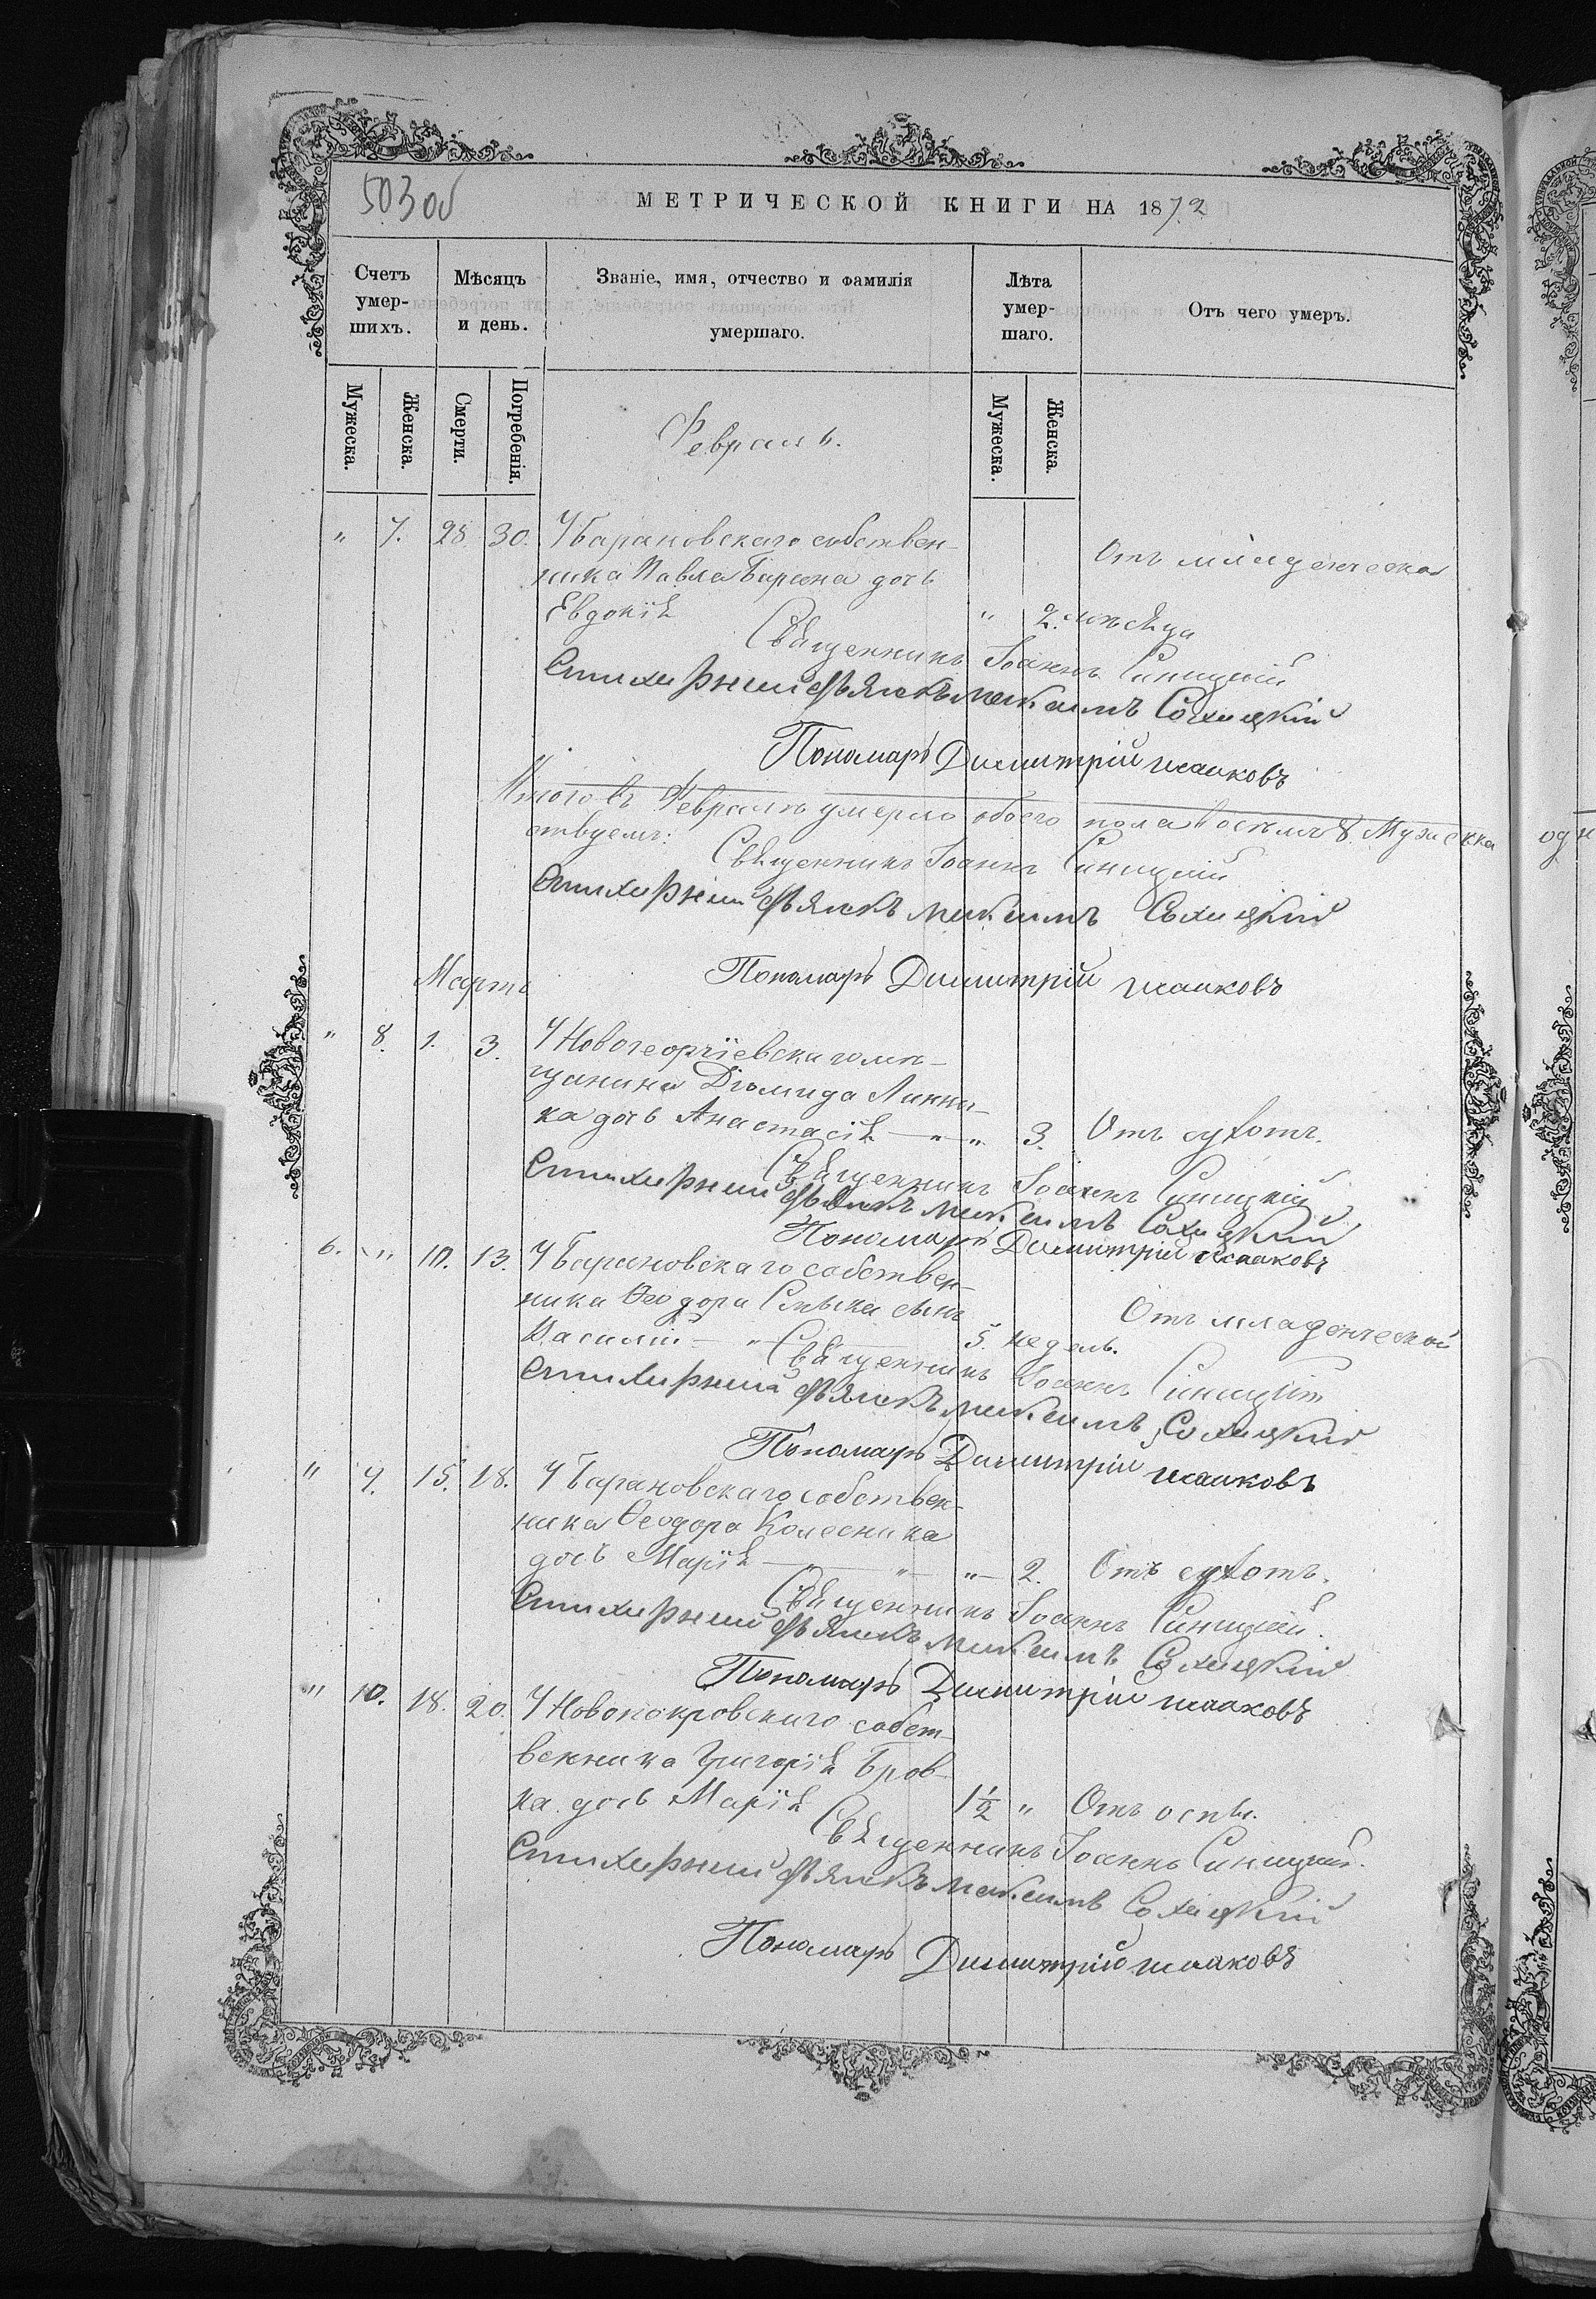 503 об
МЕТРИЧЕСКОЙ КНИГИ НА 1872
Счетъ умер-шихъ. Мѣсяцъ и день. Званіе, имя, отчество и фамилія умершаго. Лѣта умер-шаго. Отъ чего умеръ.
Мужеска. Женска. Смерти. Погребенія. Мужеска. Женска.
Февраль.
" 7. 28 30. У Барановскаго собствен-
ника Павла Барана дочь Отъ младенческой
Евдокія " 2. мѣсяца
Священникъ Іоаннъ Синицкій
Стихирный дьячекъ Максимъ Сохицкій
Пономарь Димитрій Исаковъ
Итого въ Февралѣ умерло обоего пола восемь 8. Мужеска
Священникъ Іоаннъ Синицкій
Стихирный дьячекъ Максимъ Сохицкій
Мартъ Пономарь Димитрій Исаковъ
" 8. 1. 3. У Новогеоргіевскаго мѣ-
щанина Діомида Линни-
ка дочь Анастасія — " — " 3. Отъ сухотъ.
Священникъ Іоаннъ Синицкій
Стихирный дьячекъ Максимъ Сохицкій
Пономарь Димитрій Исаковъ
6. " 10. 13. У Барановскаго собствен-
ника Ѳеодора сынъ Отъ младенческой
Василій — " — 5. недель.
Священникъ Іоаннъ Синицкій
Стихирный дьячекъ Максимъ Сохицкій
Пономарь Димитрій Исаковъ
" 9. 15. 18. У Барановскаго собствен-
ника Ѳеодора Колесника
дочь Марія — " — " — " — 2. Отъ сухотъ.
Священникъ Іоаннъ Синицкій.
Стихирный дьячекъ Максимъ Сохицкій
Пономарь Димитрій Исаковъ
" 10. 18. 20. У Новопокровскаго собст-
венника Григорія Бров-
ка дочь Марія 1½ " Отъ оспы.
Священникъ Іоаннъ Синицкій.
Стихирный дьячекъ Максимъ Сохицкій
Пономарь Димитрій Исаковъ